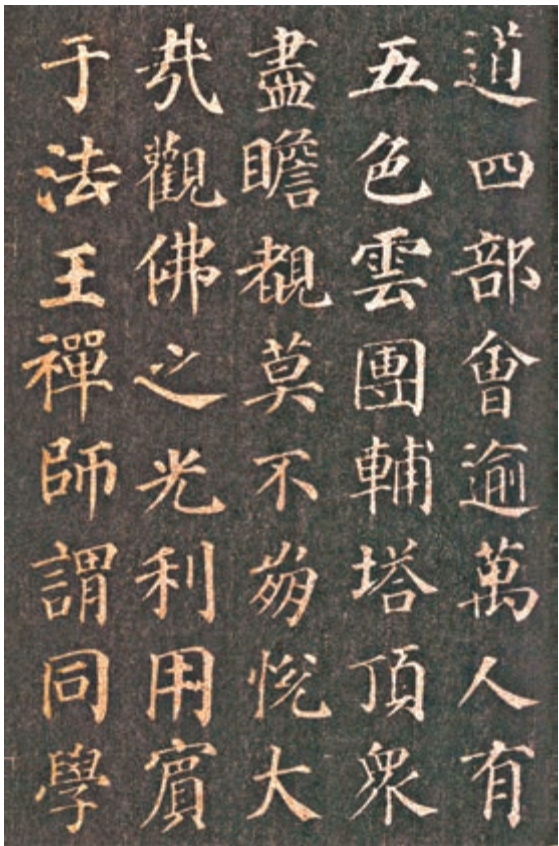 道四部會逾萬人有
五色雲團輔塔頂衆
盡瞻覩莫不歡悅大
哉觀佛之光利用賓
于法王禪師謂同學